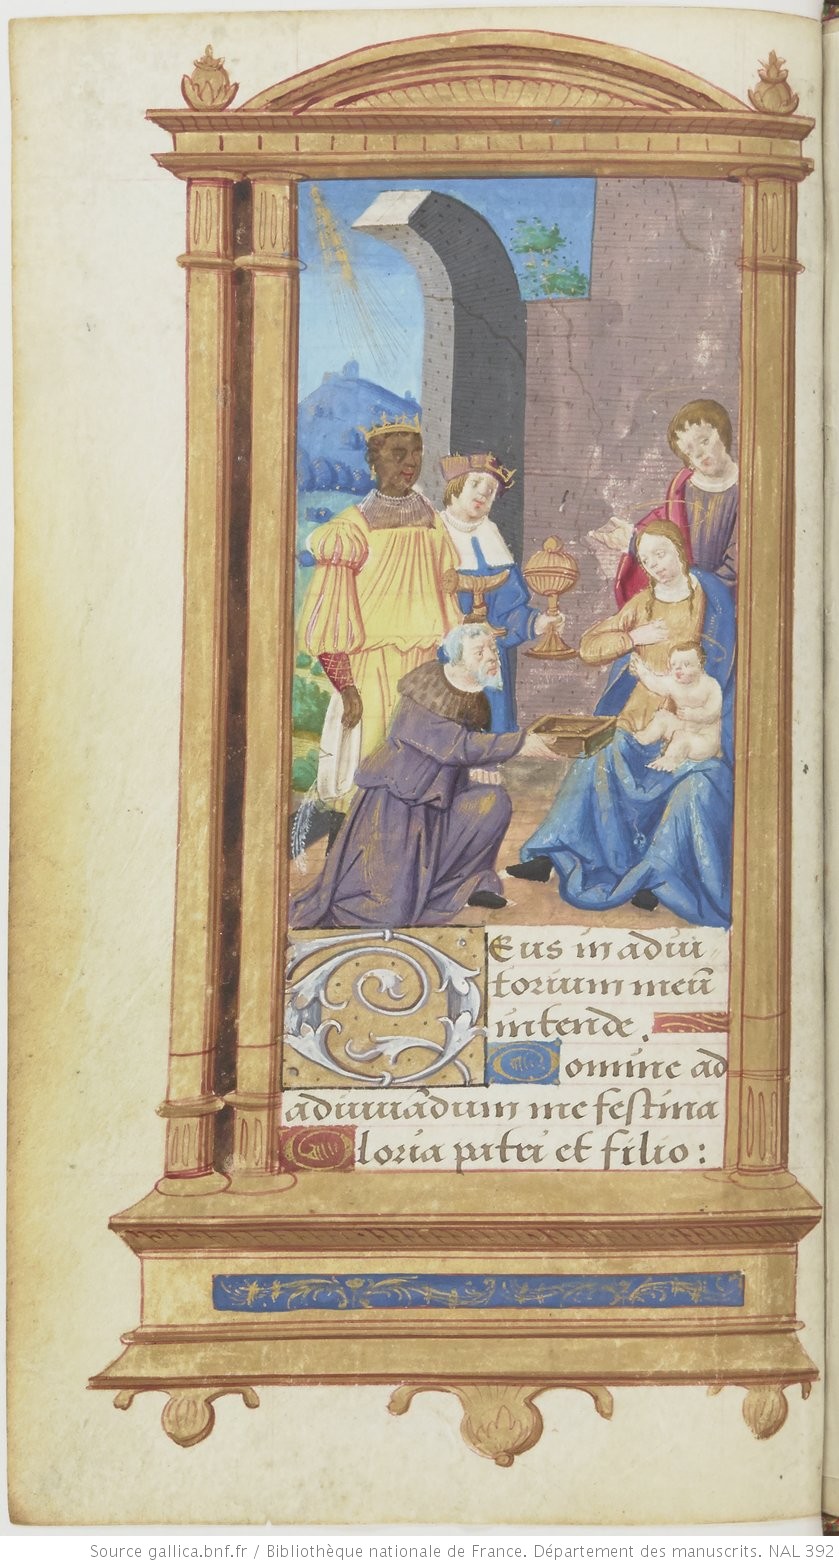 Deus in adiu
torium meū
intende.
Domine ad
adiuuādum me festina
Gloria patri et filio:
Source gallica.bnf.fr / Bibliothèque nationale de France. Département des manuscrits. NAL 392